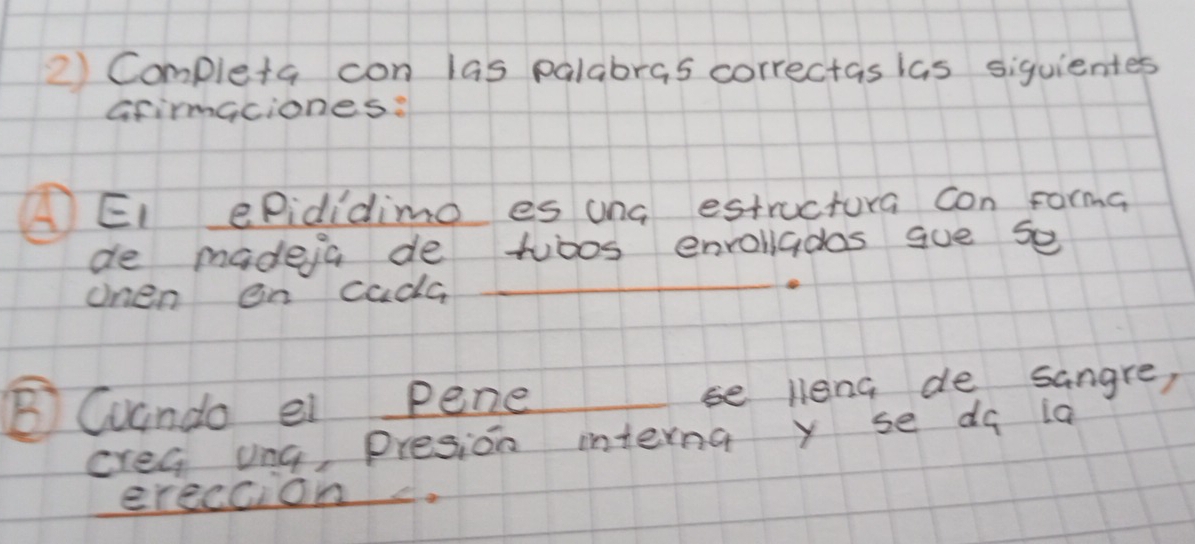 2) Completa con las palabras correctas las siguientes
afirmaciones:
A) El epidídimo es una estructura con forma
de madeja de tubos enrollados que se
unen en cada ____________.
B) Cuando el Pene se llena de sangre,
crea una, Presión interna y se da la
erección.